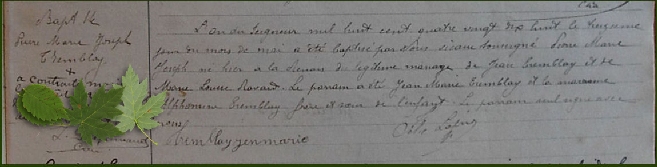 Cau
Bapt 14
Pierre Marie Joseph
Tremblay
+
a contracté
L'an du Seigneur mil huit cent quatre vingt dix huit le treizieme
jour du mois de mai a été baptisé par Nous vicaire soussigné Marie
Joseph né hier a la légitime mariage de Jean Tremblay et de
Marie Louise Savard. Le parrain a été Jean Marie Tremblay et la marraine
Alphonsine Tremblay frère et soeur de l'enfant. Le parrain seul signe avec
nous
Tremblay jeanmarie